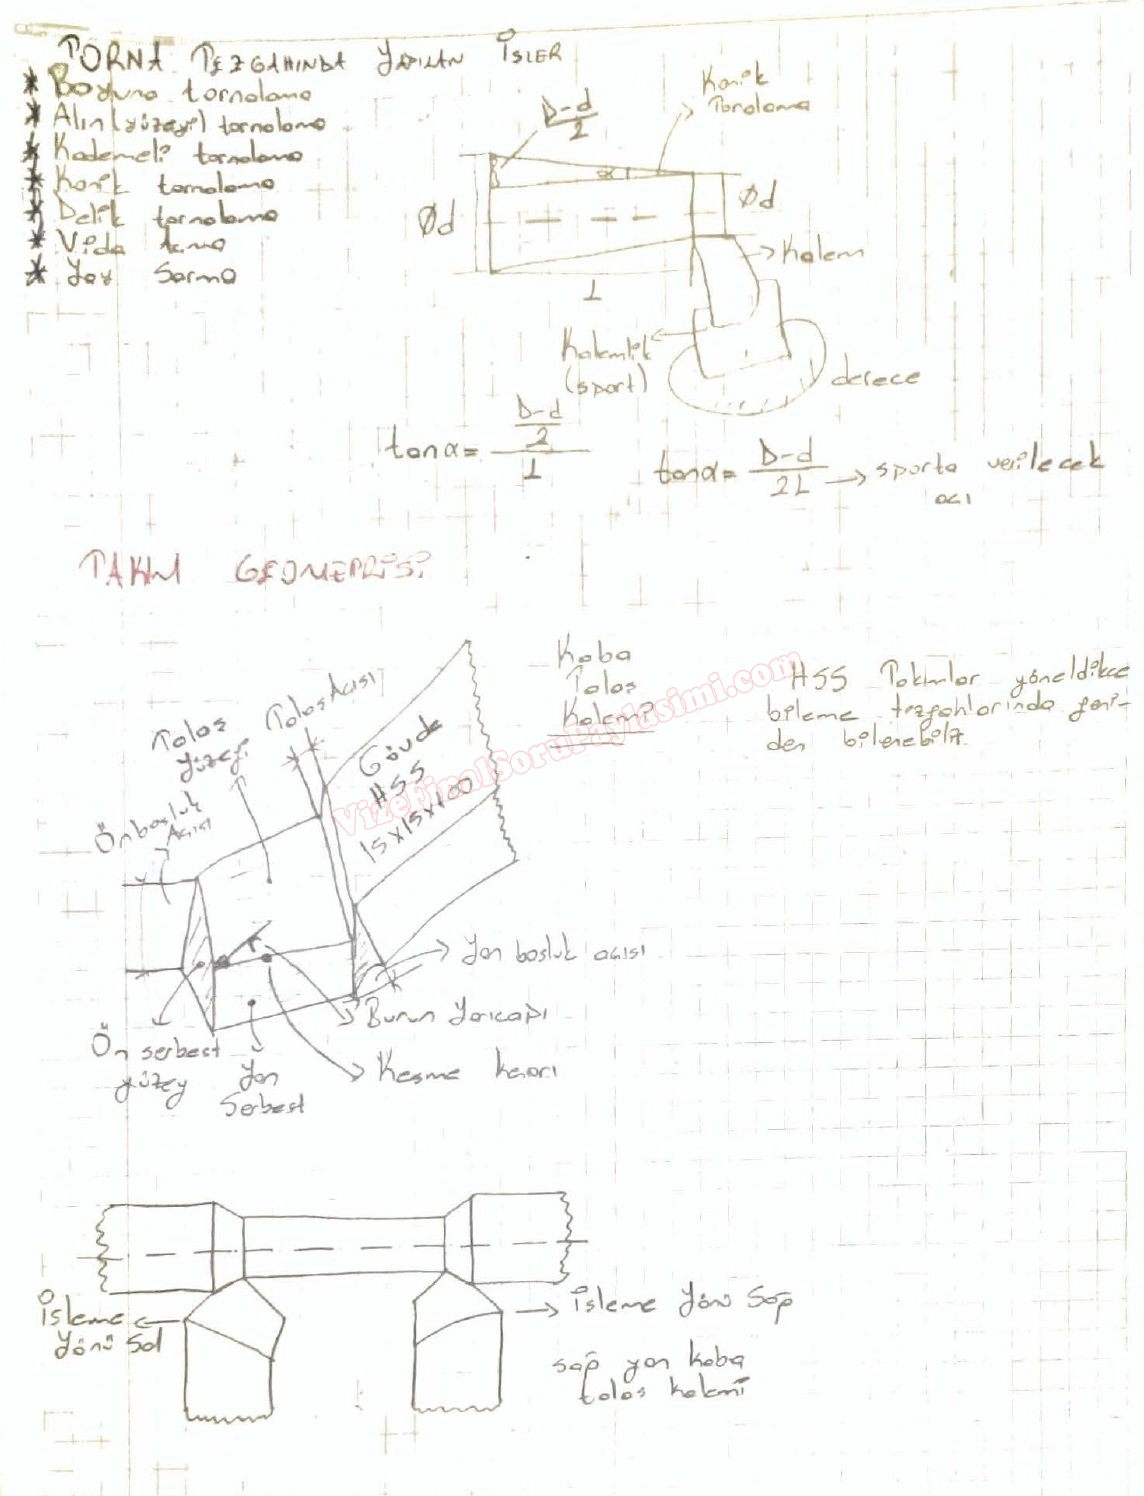 TORNA TEZGAHINDA YAPILAN İŞLER
* Boyuna tornalama
* Alın (yüzey) tornalama
* Kademeli tornalama
* Konik tornalama
* Delik tornalama
* Vida açma
* Yay Sarma
D-d
2
Konik
Tornalama
α
Ød
Ød
L
Kalem
Kalemlik
(sport)
derece
tanα = D-d/2 / L
tanα = D-d/2L → sporta verilecek
açı
TAKIM GEOMETRİSİ
Talaş
yüzeyi
Talaş Açısı
Gövde
HSS
15x15x100
Kaba
Talaş
Kalemi
HSS Takımlar
bileme tezgahlarında yeni-
den bilenebilir.
VizeFinalSoruPaylasimi.com
Ön boşluk
Açısı
r
Yan boşluk açısı
Burun Yarıçapı
Kesme kenarı
Ön serbest
yüzey
Yan
Serbest
İşleme
Yönü Sol
İşleme Yönü Sağ
sağ yan kaba
talaş kalemi